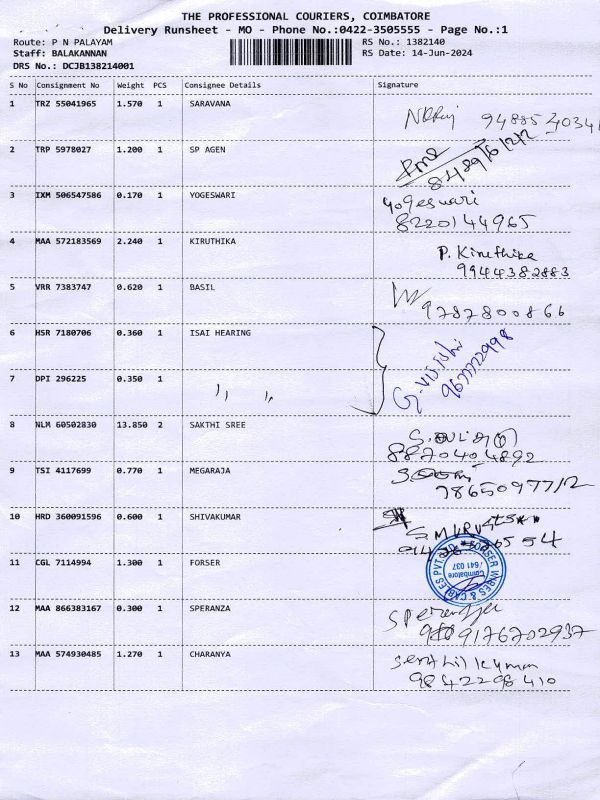 THE PROFESSIONAL COURIERS, COIMBATORE
Delivery Runsheet - MO - Phone No.:0422-3505555 - Page No.:1
Route: P N PALAYAM RS No.: 1382140
Staff: BALAKANNAN RS Date: 14-Jun-2024
DRS No.: DCJB138214001
S No Consignment No Weight PCS Consignee Details Signature
1 TRZ 55041965 1.570 1 SARAVANA
94885 40341
2 TRP 5978027 1.200 1 SP AGEN
3 IXM 506547586 0.170 1 YOGESWARI yogeswari
8220144965
4 MAA 572183569 2.240 1 KIRUTHIKA P. Kiruthika
9944382883
5 VRR 7383747 0.620 1 BASIL
9787800866
6 HSR 7180706 0.360 1 ISAI HEARING
7 DPI 296225 0.350 1 ,, ,,
8 NLM 60502830 13.850 2 SAKTHI SREE
8870404892
9 TSI 4117699 0.770 1 MEGARAJA
10 HRD 360091596 0.600 1 SHIVAKUMAR
11 CGL 7114994 1.300 1 FORSER
FORSER WIRES & CABLES PVT. LTD
Coimbatore
641 037
12 MAA 866383167 0.300 1 SPERANZA
9176702937
13 MAA 574930485 1.270 1 CHARANYA Senthil kumar
9842298410